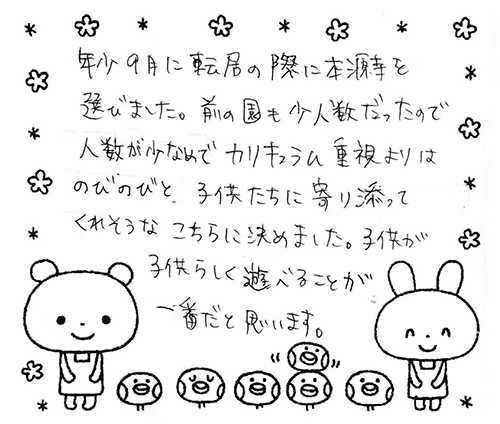 年少9月に転居の際に本源寺を
選びました。前の園も少人数だったので
人数が少なめでカリキュラム重視よりは
のびのびと、子供たちに寄り添って
くれそうなこちらに決めました。子供が
子供らしく遊べることが
一番だと思います。